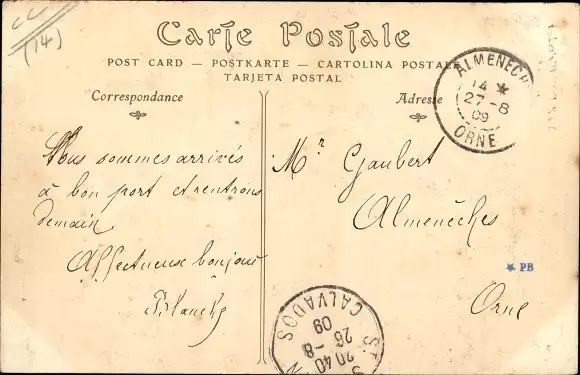 CC
(14)
Carte Postale
POST CARD — POSTKARTE — CARTOLINA POSTALE
TARJETA POSTAL
Correspondance
Adresse
ALMENECH
14 *
27-8
09
ORNE
Nous sommes arrivés
à bon port et rentrons
demain
Affectueux bonjour
Blanche
Mr Gaubert
Almenêches
Orne
* PB
20 40
26-8
09
CALVADOS